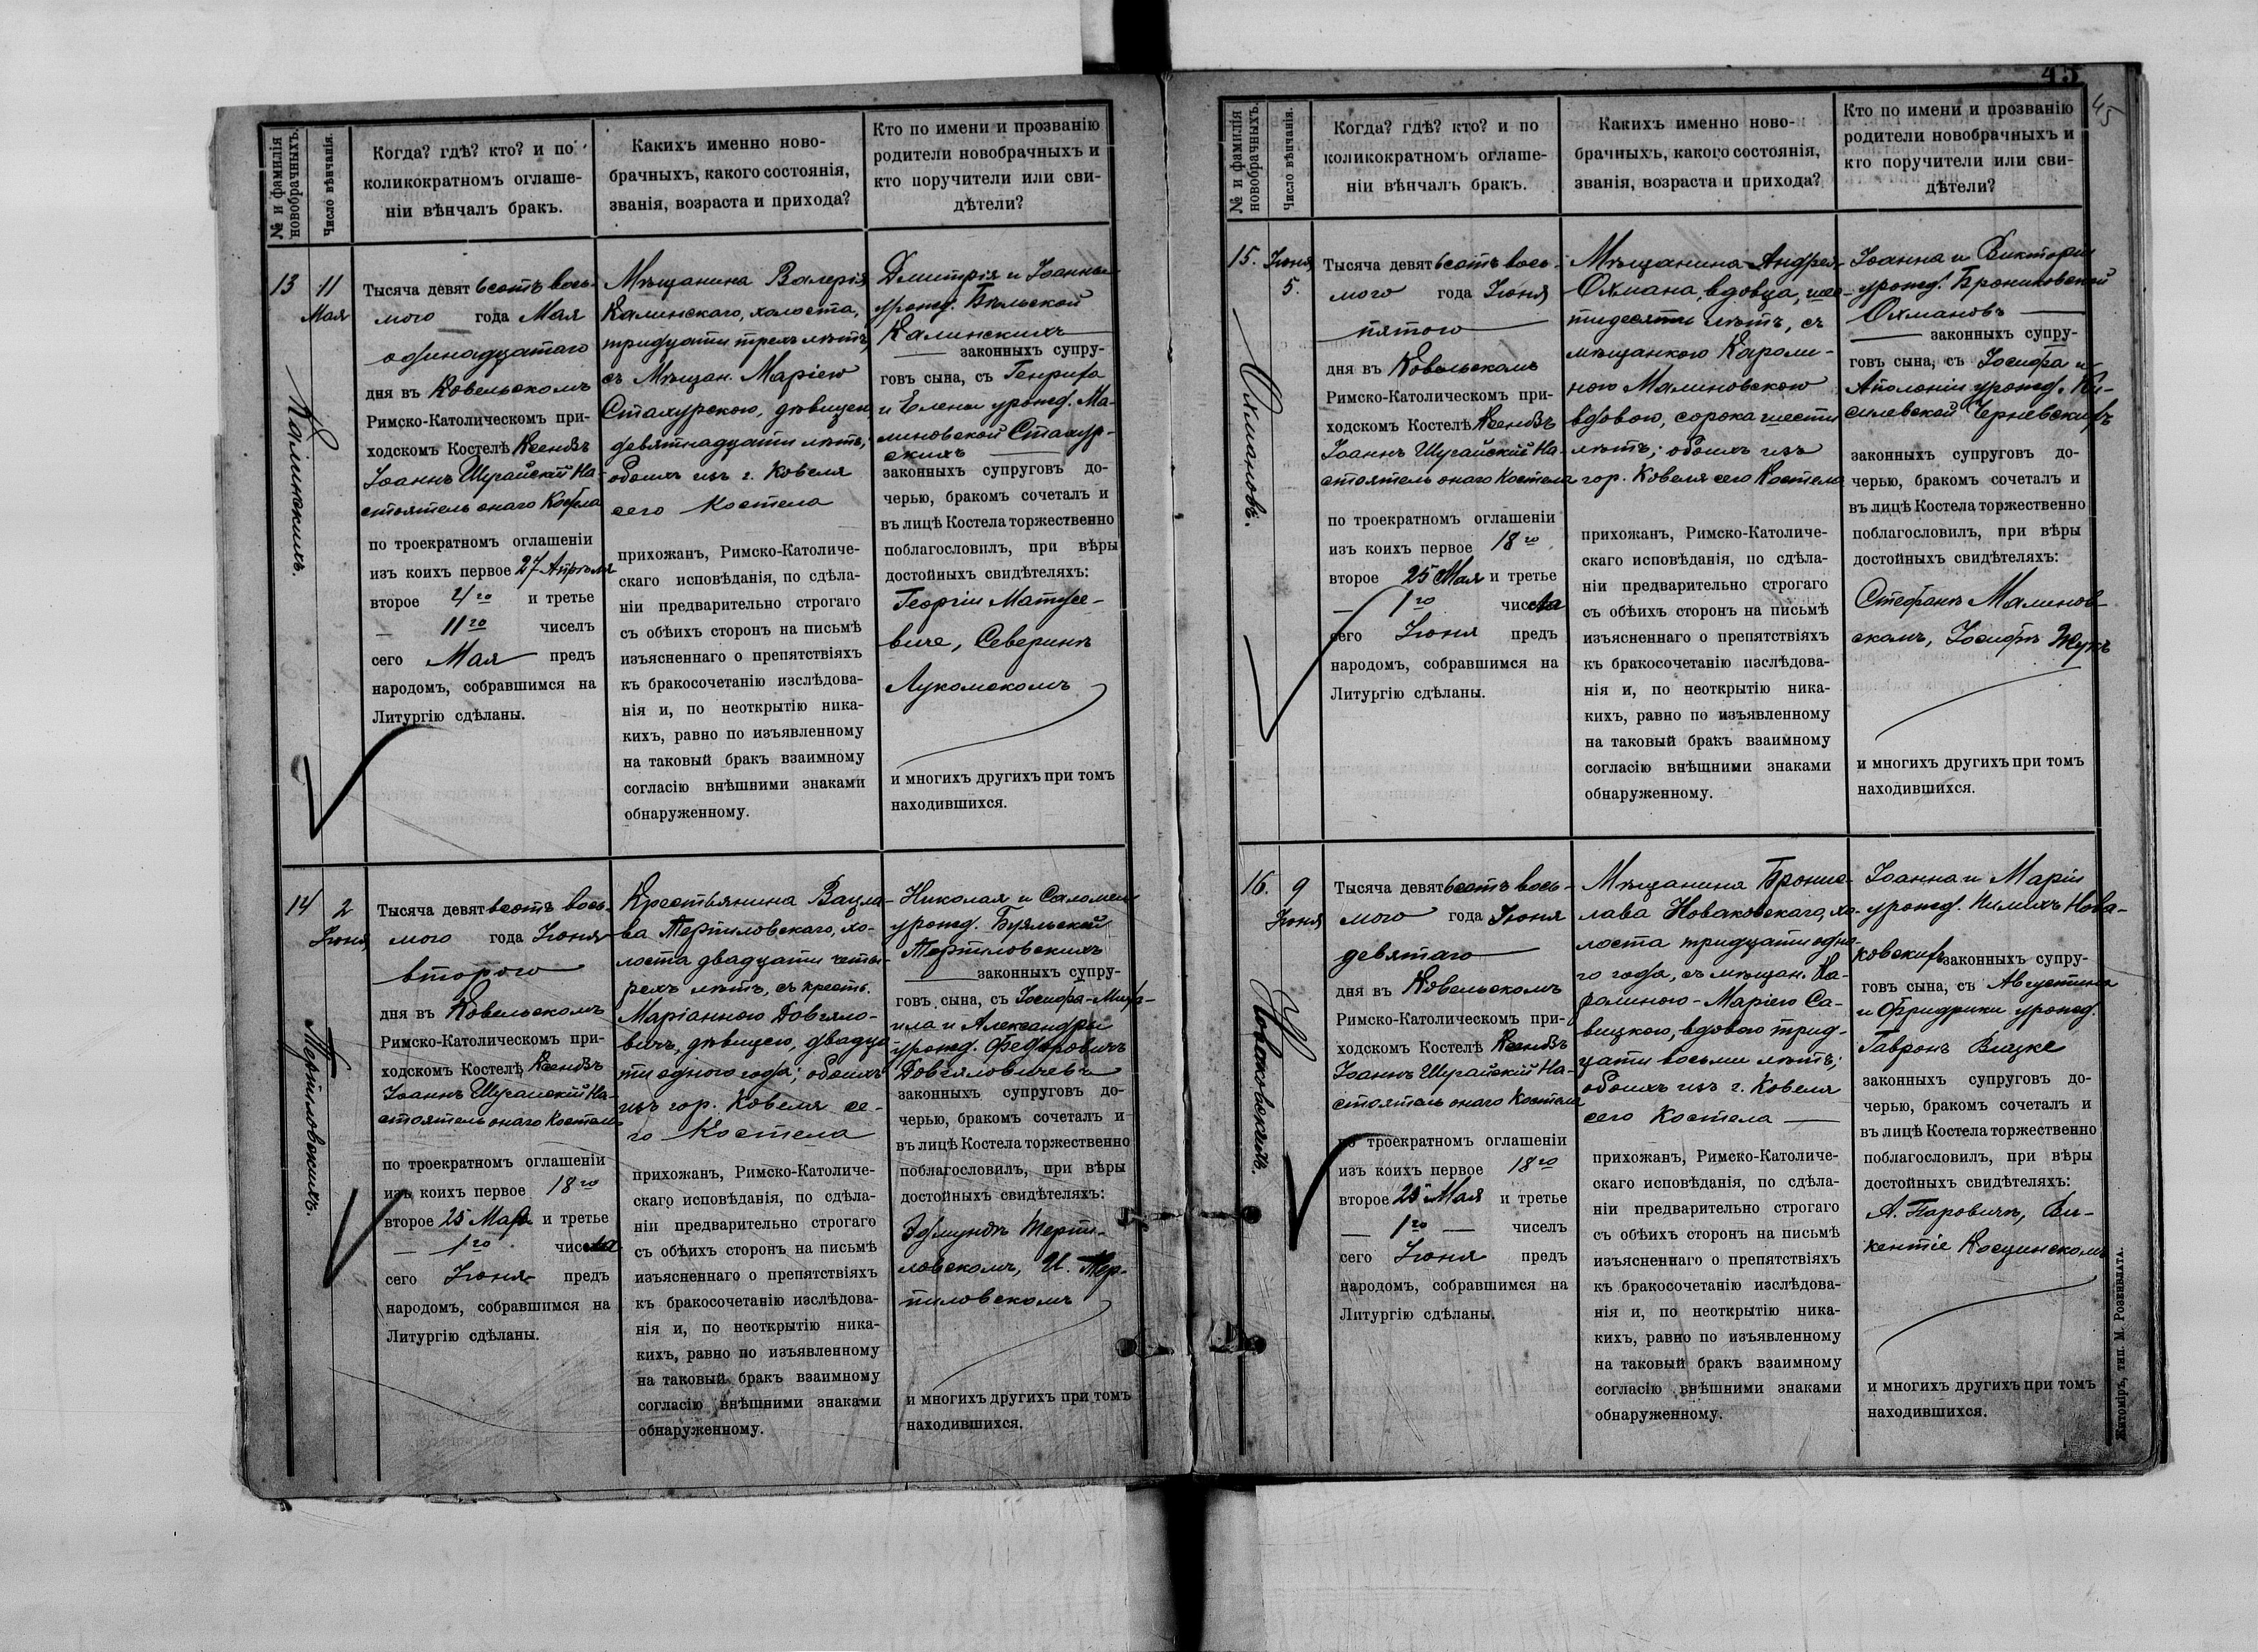 № и фамилія новобрачныхъ.
Число вѣнчанія.
Когда? гдѣ? кто? и по
коликократномъ оглаше-
ніи вѣнчалъ бракъ.
Какихъ именно ново-
брачныхъ, какого состоянія,
званія, возраста и прихода?
Кто по имени и прозванію
родители новобрачныхъ и
кто поручители или сви-
дѣтели?
13
11
Мая
Калинскихъ.
Тысяча девятьсотъ вось-
мого года Мая
одинадцатаго
дня въ Ковельскомъ
Римско-Католическомъ при-
ходскомъ Костелѣ Ксендзъ
Іоаннъ Шугайскій На-
стоятель онаго Костела
по троекратномъ оглашеніи
изъ коихъ первое 27 Апрѣля
второе 4го и третье
11го чиселъ
сего Мая предъ
народомъ, собравшимся на
Литургію сдѣланы.
Мѣщанина Валерія
Калинскаго, холоста,
тридцати трехъ лѣтъ,
съ Мѣщан. Маріею
Стахурскою, дѣвицею
девятнадцати лѣтъ;
обоихъ изъ г. Ковеля
сего Костела
прихожанъ, Римско-Католиче-
скаго исповѣданія, по сдѣла-
ніи предварительно строгаго
съ обѣихъ сторонъ на письмѣ
изъясненнаго о препятствіяхъ
къ бракосочетанію изслѣдова-
нія и, по неоткрытію ника-
кихъ, равно по изъявленному
на таковый бракъ взаимному
согласію внѣшними знаками
обнаруженному.
Дмитрія и Іоанны
урожд. Бѣльской
Калинскихъ
законныхъ супру-
говъ сына, съ Генриха
и Елены урожд. Ма-
линовской Стахур-
скихъ
законныхъ супруговъ до-
черью, бракомъ сочеталъ и
въ лицѣ Костела торжественно
поблагословилъ, при вѣры
достойныхъ свидѣтеляхъ:
Георгіи Матусе-
виче, Северинѣ
Лукомскомъ
и многихъ другихъ при томъ
находившихся.
14
2
Іюня
Тертиловскихъ.
Тысяча девятьсотъ вось-
мого года Іюня
второго
дня въ Ковельскомъ
Римско-Католическомъ при-
ходскомъ Костелѣ Ксендзъ
Іоаннъ Шугайскій На-
стоятель онаго Костела
по троекратномъ оглашеніи
изъ коихъ первое 18го
второе 25 Мая и третье
1го числа
сего Іюня предъ
народомъ, собравшимся на
Литургію сдѣланы.
Крестьянина Вацла-
ва Тертиловскаго, хо-
лоста двадцати четы-
рехъ лѣтъ, съ крестьд.
Маріанною Довгяло-
вичъ, дѣвицею, двадца-
ти одного года; обоихъ
изъ гор. Ковеля се-
го Костела
прихожанъ, Римско-Католиче-
скаго исповѣданія, по сдѣла-
ніи предварительно строгаго
съ обѣихъ сторонъ на письмѣ
изъясненнаго о препятствіяхъ
къ бракосочетанію изслѣдова-
нія и, по неоткрытію ника-
кихъ, равно по изъявленному
на таковый бракъ взаимному
согласію внѣшними знаками
обнаруженному.
Николая и Саломеи
урожд. Буяльской
Тертиловскихъ
законныхъ супру-
говъ сына, съ Іосифа-Миха-
ила и Александры
урожд. Федоровичъ
Довгяловичевъ
законныхъ супруговъ до-
черью, бракомъ сочеталъ и
въ лицѣ Костела торжественно
поблагословилъ, при вѣры
достойныхъ свидѣтеляхъ:
Эдмундѣ Терти-
ловскомъ, И. Тер-
тиловскомъ
и многихъ другихъ при томъ
находившихся.
45
45
№ и фамилія новобрачныхъ.
Число вѣнчанія.
Когда? гдѣ? кто? и по
коликократномъ оглаше-
ніи вѣнчалъ бракъ.
Какихъ именно ново-
брачныхъ, какого состоянія,
званія, возраста и прихода?
Кто по имени и прозванію
родители новобрачныхъ и
кто поручители или сви-
дѣтели?
15.
Іюня
5.
Охмановъ.
Тысяча девятьсотъ вось-
мого года Іюня
пятого
дня въ Ковельскомъ
Римско-Католическомъ при-
ходскомъ Костелѣ Ксендзъ
Іоаннъ Шугайскій На-
стоятель онаго Костела
по троекратномъ оглашеніи
изъ коихъ первое 18го
второе 25 Мая и третье
1го числа
сего Іюня предъ
народомъ, собравшимся на
Литургію сдѣланы.
Мѣщанина Андрея
Охмана, вдовца, шес-
тидесяти лѣтъ, съ
мѣщанкою Кароли-
ною Малиновскою
вдовою, сорока шести
лѣтъ; обоихъ изъ
гор. Ковеля сего Костела
прихожанъ, Римско-Католиче-
скаго исповѣданія, по сдѣла-
ніи предварительно строгаго
съ обѣихъ сторонъ на письмѣ
изъясненнаго о препятствіяхъ
къ бракосочетанію изслѣдова-
нія и, по неоткрытію ника-
кихъ, равно по изъявленному
на таковый бракъ взаимному
согласію внѣшними знаками
обнаруженному.
Іоанна и Викторіи
урожд. Брониковской
Охмановъ
законныхъ супру-
говъ сына, съ Іосифа и
Аполоніи урожд. Ки-
силевской Черневскихъ
законныхъ супруговъ до-
черью, бракомъ сочеталъ и
въ лицѣ Костела торжественно
поблагословилъ, при вѣры
достойныхъ свидѣтеляхъ:
Стефанѣ Малинов-
скомъ, Іосифѣ Жукъ
и многихъ другихъ при томъ
находившихся.
16.
9
Іюня
Новаковскихъ.
Тысяча девятьсотъ вось-
мого года Іюня
девятаго
дня въ Ковельскомъ
Римско-Католическомъ при-
ходскомъ Костелѣ Ксендзъ
Іоаннъ Шугайскій На-
стоятель онаго Костела
по троекратномъ оглашеніи
изъ коихъ первое 18го
второе 25 Мая и третье
1го чиселъ
сего Іюня предъ
народомъ, собравшимся на
Литургію сдѣланы.
Мѣщанина Бронис-
лава Новаковскаго, хо-
лоста тридцати одно-
го года, съ мѣщан. Ка-
ролиною-Маріею Са-
вицкою, вдовою трид-
цати восьми лѣтъ;
обоихъ изъ г. Ковеля
сего Костела
прихожанъ, Римско-Католиче-
скаго исповѣданія, по сдѣла-
ніи предварительно строгаго
съ обѣихъ сторонъ на письмѣ
изъясненнаго о препятствіяхъ
къ бракосочетанію изслѣдова-
нія и, по неоткрытію ника-
кихъ, равно по изъявленному
на таковый бракъ взаимному
согласію внѣшними знаками
обнаруженному.
Іоанна и Маріи
урожд. Нова-
ковскихъ законныхъ супру-
говъ сына, съ Августина
и Фридрики урожд.
Гавронъ
законныхъ супруговъ до-
черью, бракомъ сочеталъ и
въ лицѣ Костела торжественно
поблагословилъ, при вѣры
достойныхъ свидѣтеляхъ:
А. Паровичъ, Ви-
кентіе Косцинскомъ
и многихъ другихъ при томъ
находившихся.
Житомiръ, тип. М. Розенблата.